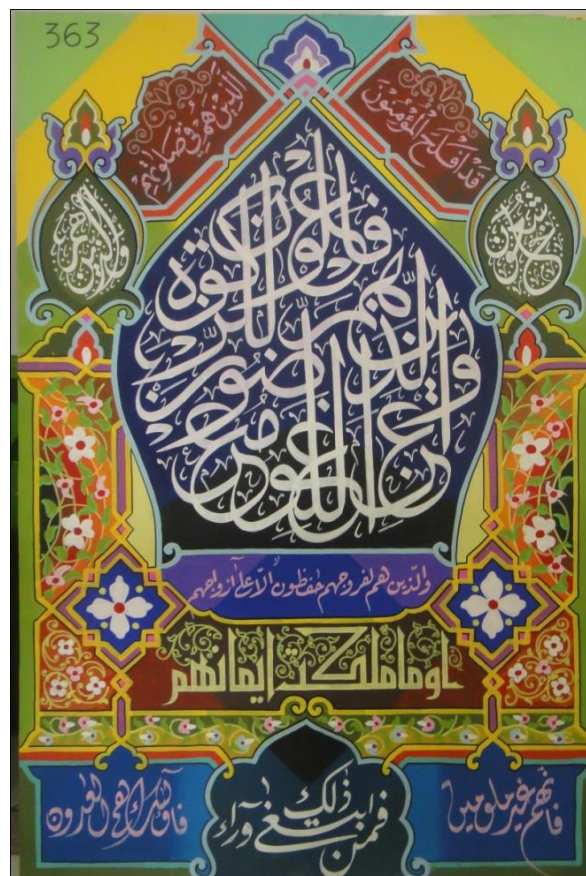 363
قد افلح المؤمنون
الذين هم في صلوتهم
خشعون
والذين هم
عن اللغو معرضون والذين هم للزكوة فعلون
والذين هم لفروجهم حفظون الا على ازواجهم
او ما ملكت ايمانهم
فانهم غير ملومين
فمن ابتغى وراء ذلك
فاولئك هم العدون